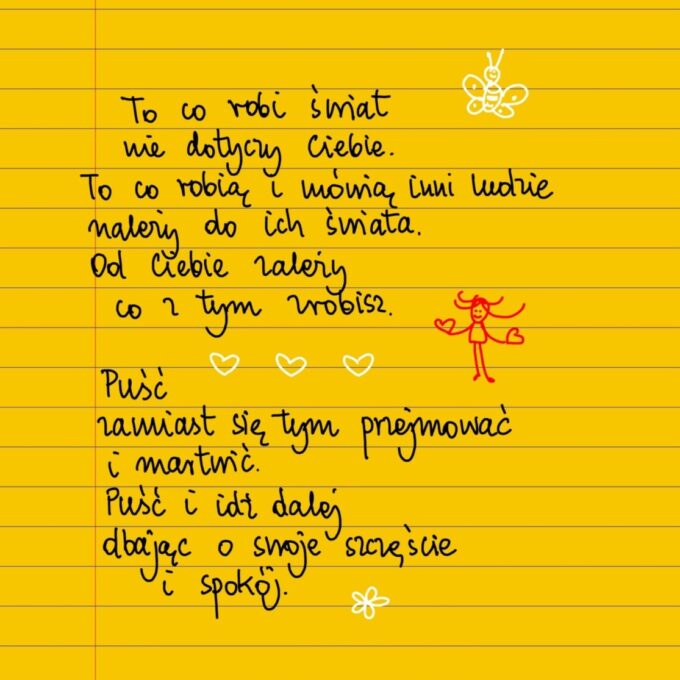 To co robi świat
nie dotyczy Ciebie.
To co robią i mówią inni ludzie
należy do ich świata.
Od Ciebie zależy
co z tym zrobisz.
Puść
zamiast się tym przejmować
i martwić.
Puść i idź dalej
dbając o swoje szczęście
i spokój.